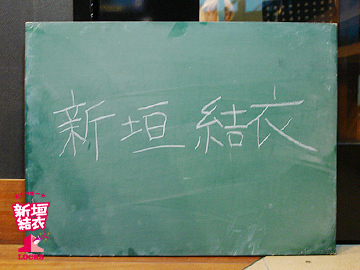 新垣結衣
新垣
結衣
LOCKS!